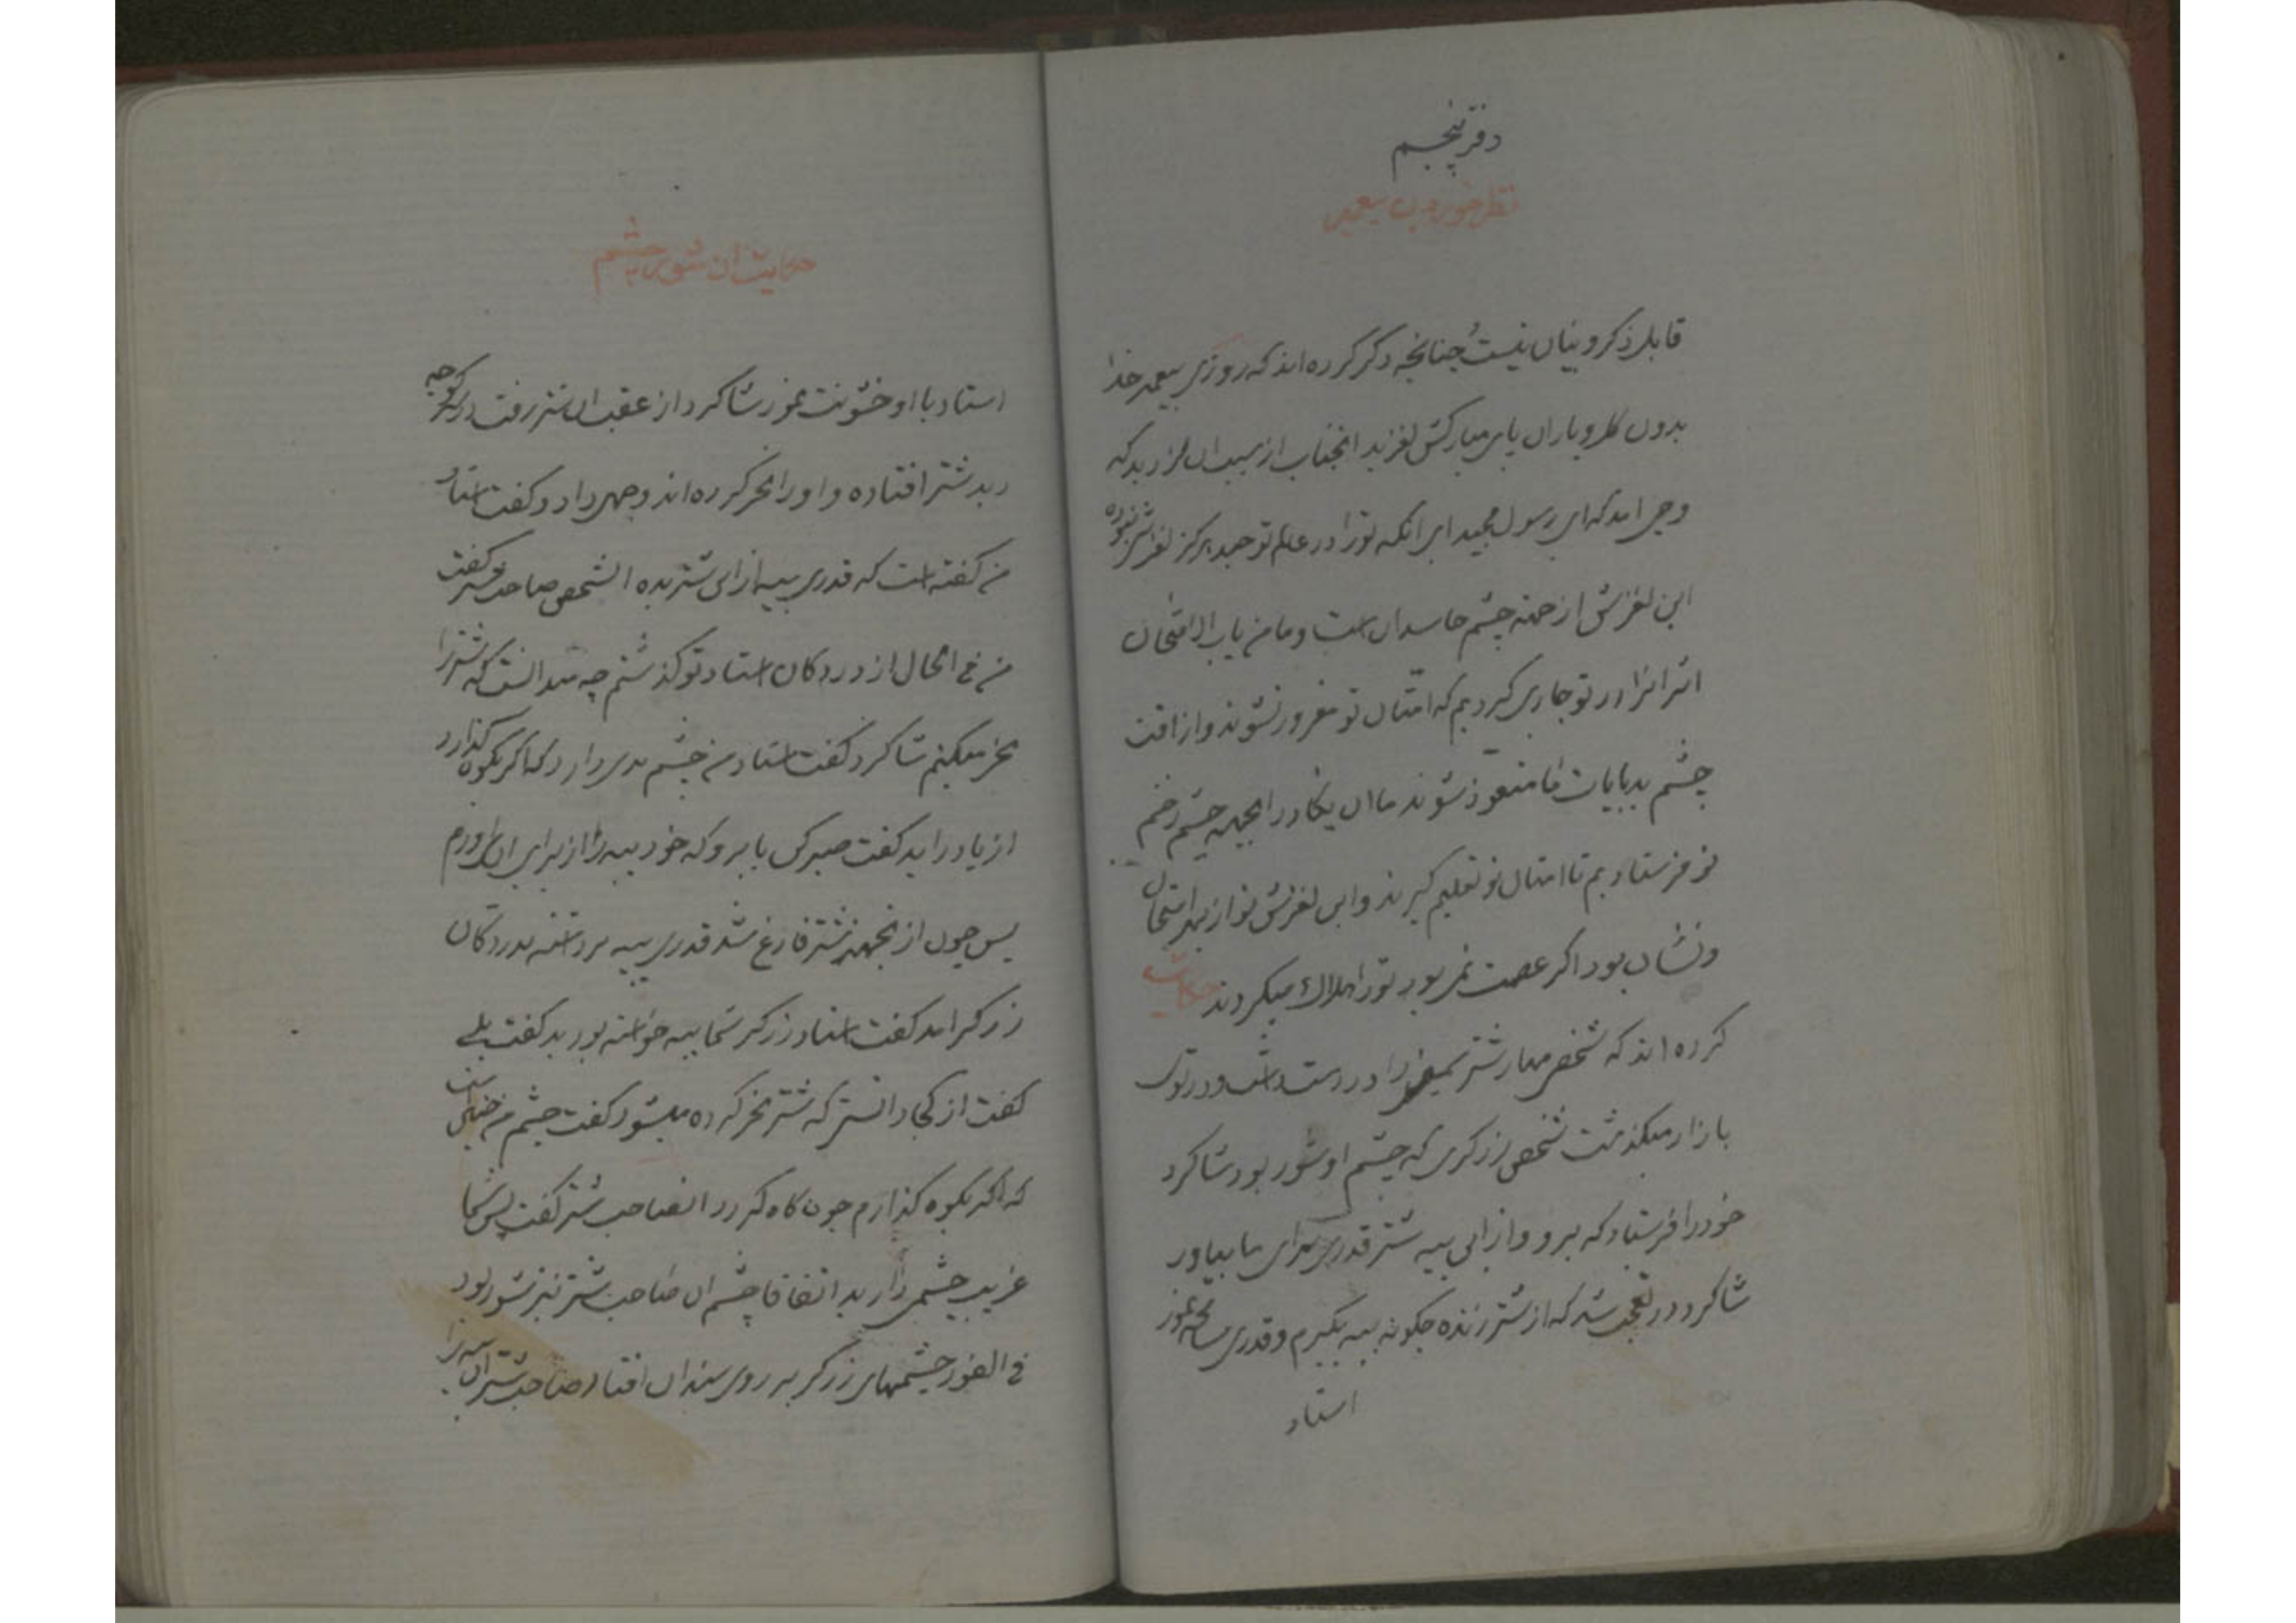 دفتر پنجم
نظر خوردن پیغمبر
قابل ذکر و بیان نیست چنانچه ذکر کرده اند که روزی پیغمبر خدا
بدون گل و باران پای مبارکش لغزید انجناب از سبب ان
وحی امد که ای رسول مجید ای انکه تو را در عالم توحید هرگز لغزش نبوده
این لغزش از چشم حاسدان است و ما من باب الامتحان
اثر انرا در تو جاری کردیم که امتان تو مغرور نشوند و از افت
چشم بد بایات ما متعوذ شوند ما ان یکاد را بجهة چشم زخم
تو فرستادیم تا امتان تو تعلیم گیرند و این لغزش تو از بهر امتحان
و نشان بود اگر عصمت نمی بود تو را هلاک میکردند حکایت
کرده اند که شخصی مهار شتر را در دست داشت و در توی
بازار میگذشت شخص زرگری که چشم او شور بود شاگرد
خود را فرستاد که برو و از این پیه شتر قدری برای ما بیاور
شاگرد در تعجب شد که از شتر زنده چگونه پیه بگیرم و قدری
استاد
حکایت ان شور چشم
استاد با او خشونت نمود شاگرد از عقب ان شتر رفت در کوچه
دید شتر افتاده و او را نحر کرده اند و گفت استاد
من گفته است که قدری پیه از این شتر بده الشخص صاحب شتر گفت
من فی الحال از در دکان استاد تو گذشتم چه میدانست که شتر را
نحر میکنم شاگرد گفت استاد من چشم بدی دارد که اگر بکوه گذارد
از پا در اید گفت صبر کن یا برو که خود پیه را از برای ان می اورم
پس چون از شتر فارغ شد قدری پیه برداشته بدر دکان
زرگر امد گفت استاد زرگر شما پیه خواسته بودید گفت بلی
گفت از کجا دانستی که شتر نحر کرده میشود گفت چشم من چنین است
که اگر بکوه گذارم چون کاه گردد انصاحب شتر گفت پس شما
غریب چشمی دارید اتفاقا چشم ان صاحب شتر نیز شور بود
فی الفور چشمهای زرگر بر روی سندان افتاد صاحب شتر